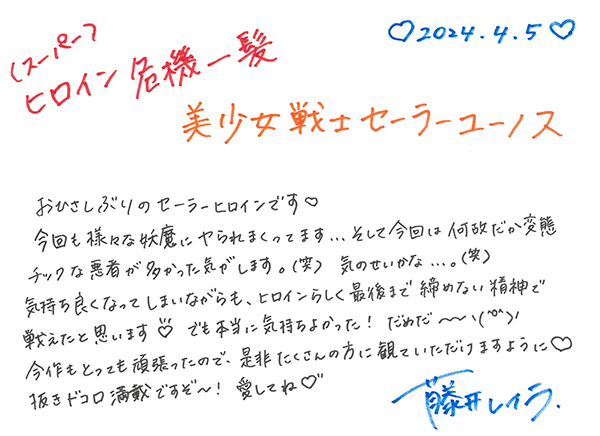 ♡2024.4.5♡
(スーパー)
ヒロイン危機一髪
美少女戦士セーラーユーノス
おひさしぶりのセーラーヒロインです♡
今回も様々な妖魔にヤられまくってます...そして今回は何故だか変態
チックな悪者が多かった気がします。(笑) 気のせいかな...。(笑)
気持ち良くなってしまいながらも、ヒロインらしく最後まで締めない精神で
戦えたと思います♡ でも本当に気持ちよかった! だめだ〜〜\(^o^)/
今作もとっても頑張ったので、是非たくさんの方に観ていただけますように♡
抜きドコロ満載ですぞ〜! 愛してね♡
藤井レイラ.